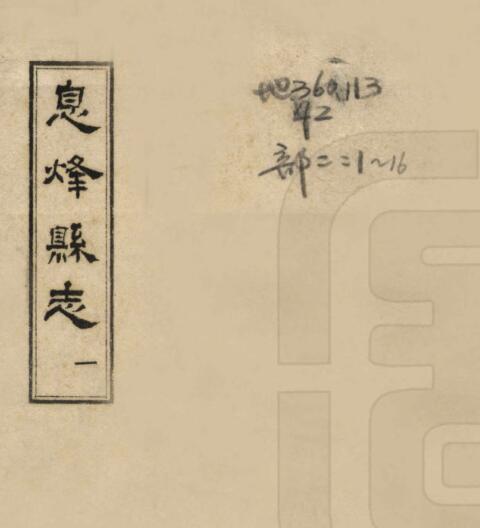 息烽縣志
一
地360.113
42
部二:1~16